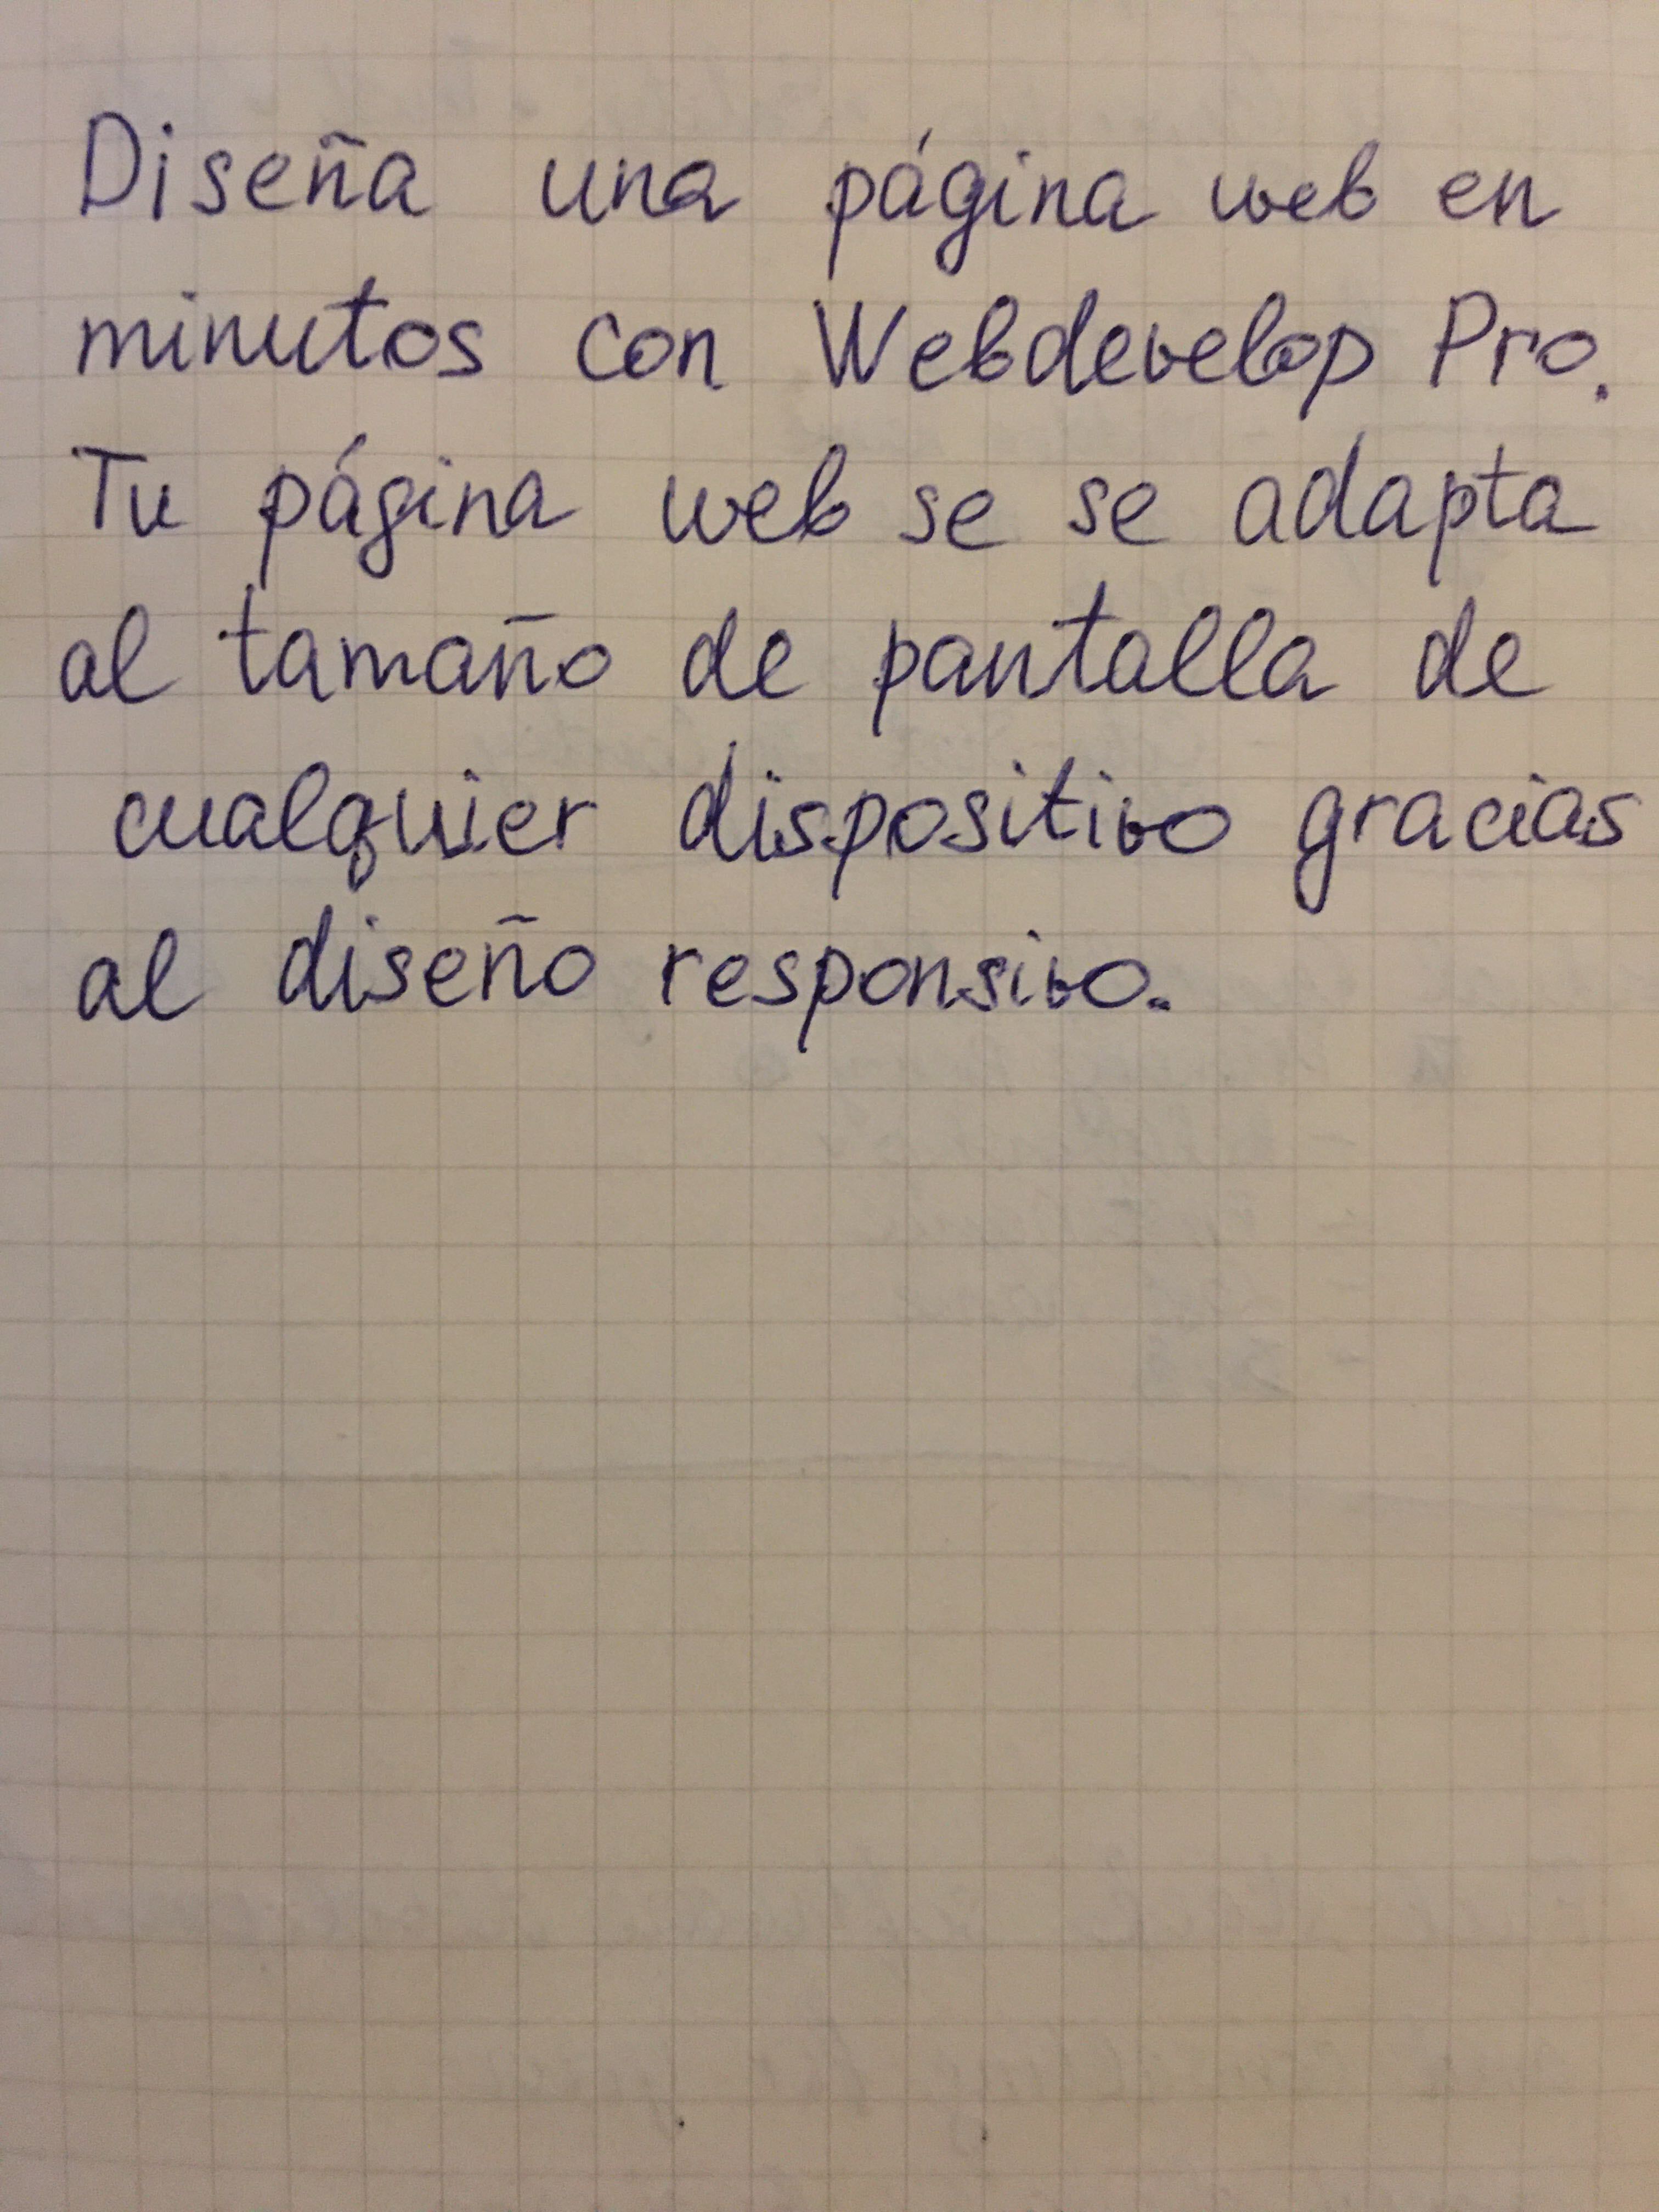 Diseña una página web en
minutos con Webdevelop Pro.
Tu página web se se adapta
al tamaño de pantalla de
cualquier dispositivo gracias
al diseño responsivo.